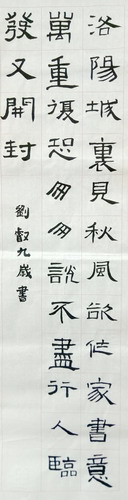 洛陽城裏見秋風欲作家書意
萬重復恐匆匆說不盡行人臨
發又開封
劉叡九歲書